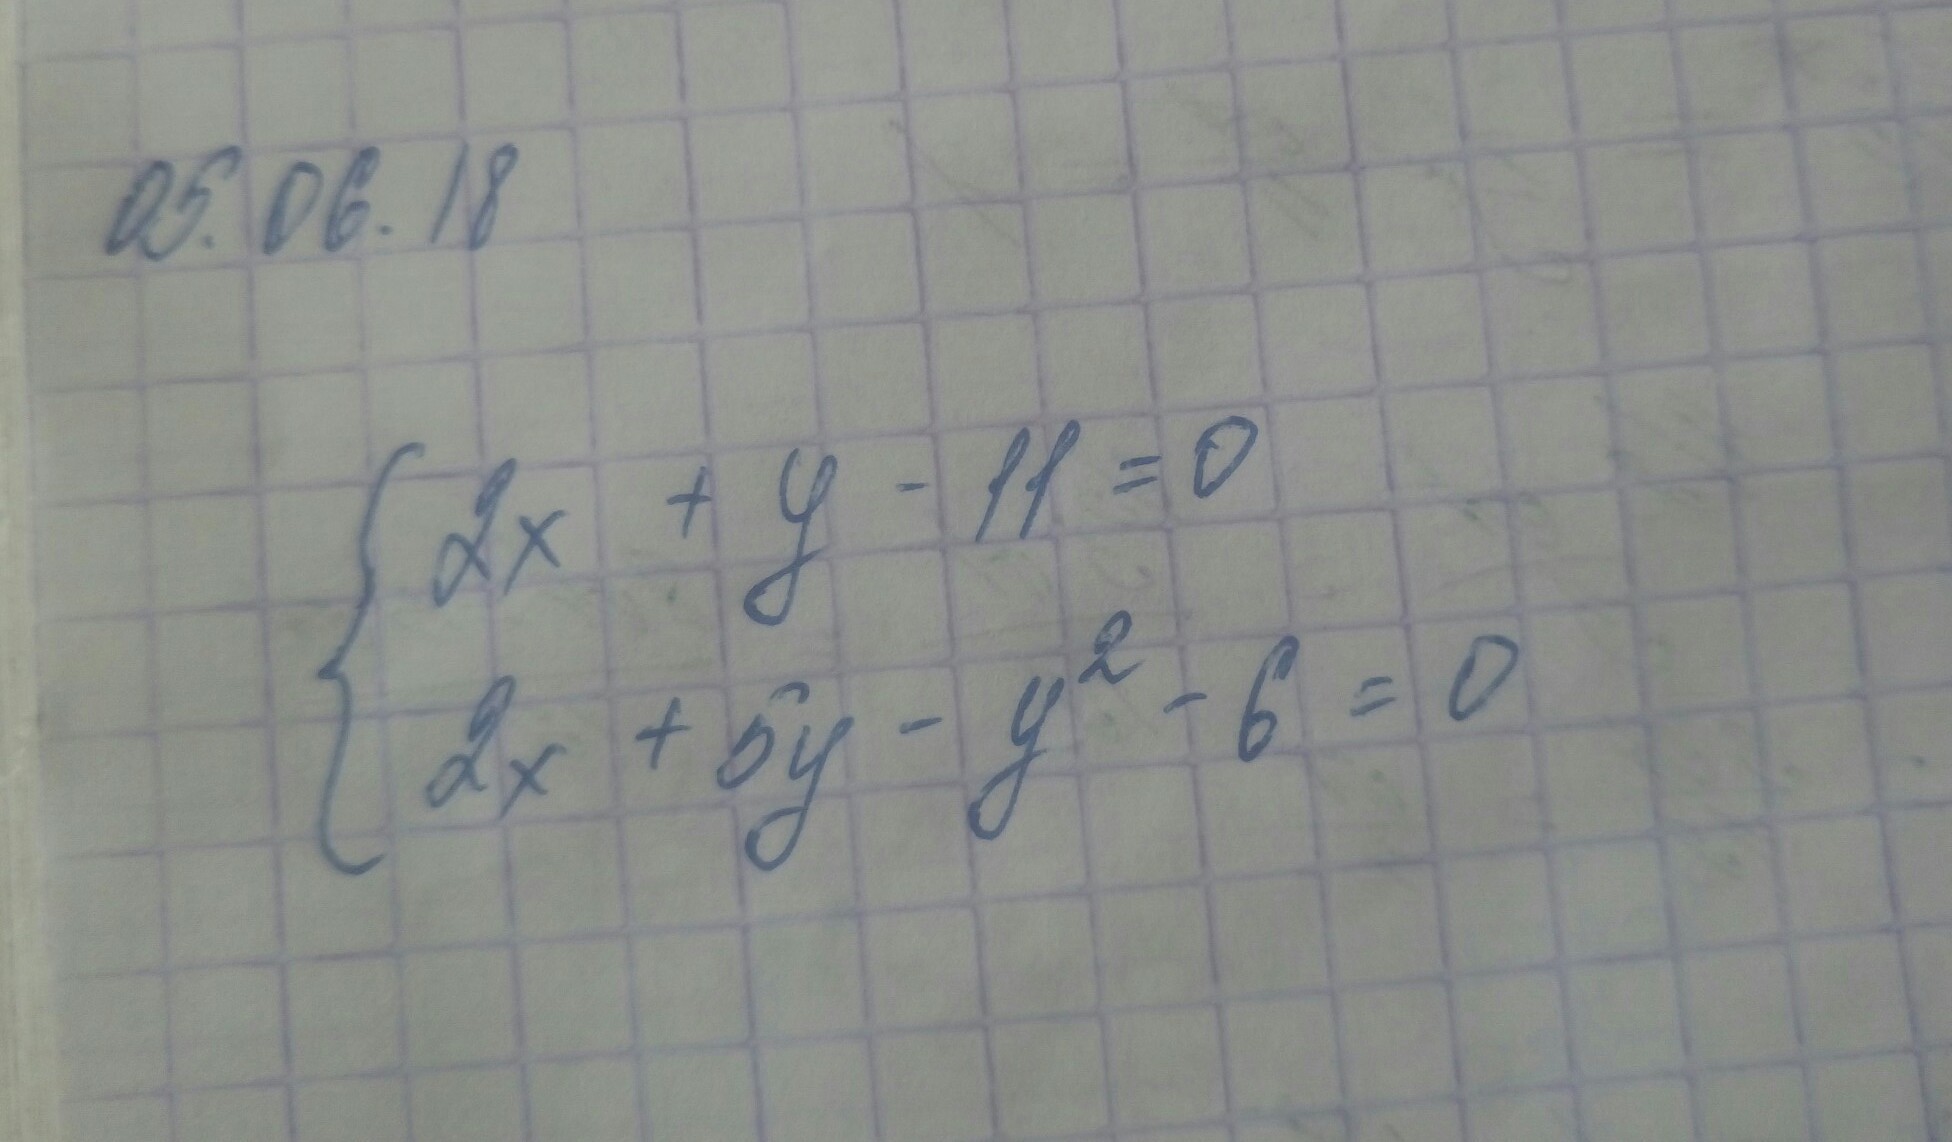 05.06.18
2x + y - 11 = 0
2x + 5y - y² - 6 = 0